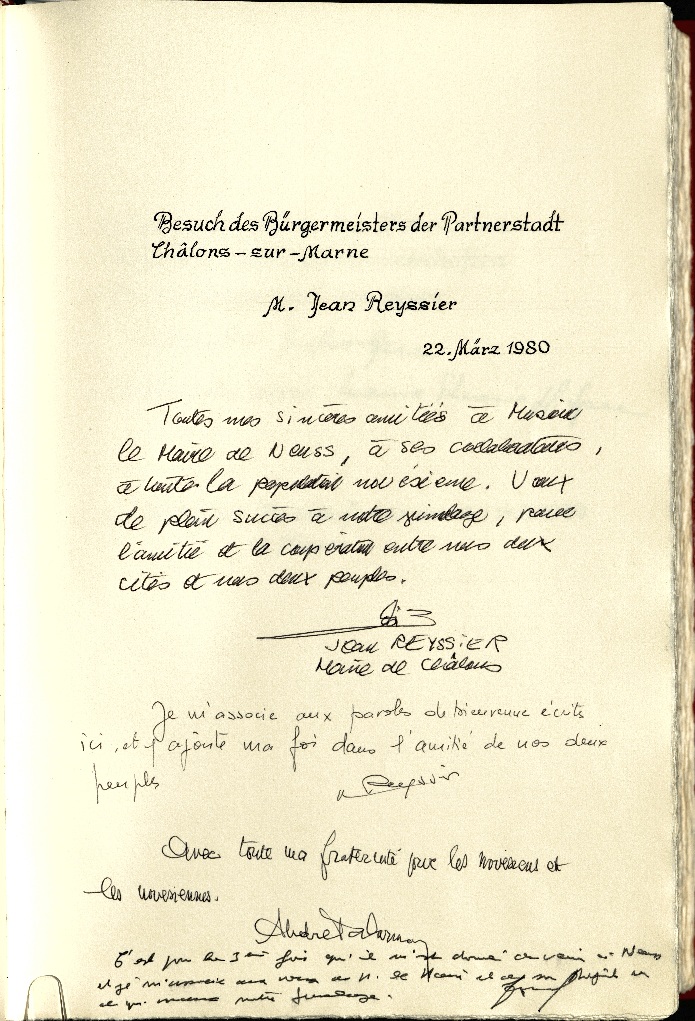 Besuch des Bürgermeisters der Partnerstadt
Châlons-sur-Marne
M. Jean Reyssier
22. März 1980
Toutes mes sincères amitiés à Monsieur
le Maire de Neuss, à ses collaborateurs,
à toute la population novésienne. Vœux
de plein succès à notre jumelage, pour
l'amitié et la coopération entre nos deux
cités et nos deux peuples.
Jean REYSSIER
Maire de Châlons
Je m'associe aux paroles de bienvenue écrits
ici, et j'ajoute ma foi dans l'amitié de nos deux
peuples
Reyssier
Avec toute ma fraternité pour les novesiens et
les novesiennes.
André
C'est la 3ème fois qu'il m'est donné de venir à Neuss
et je m'associe aux vœux de M. le Maire et de
ce qui notre jumelage.